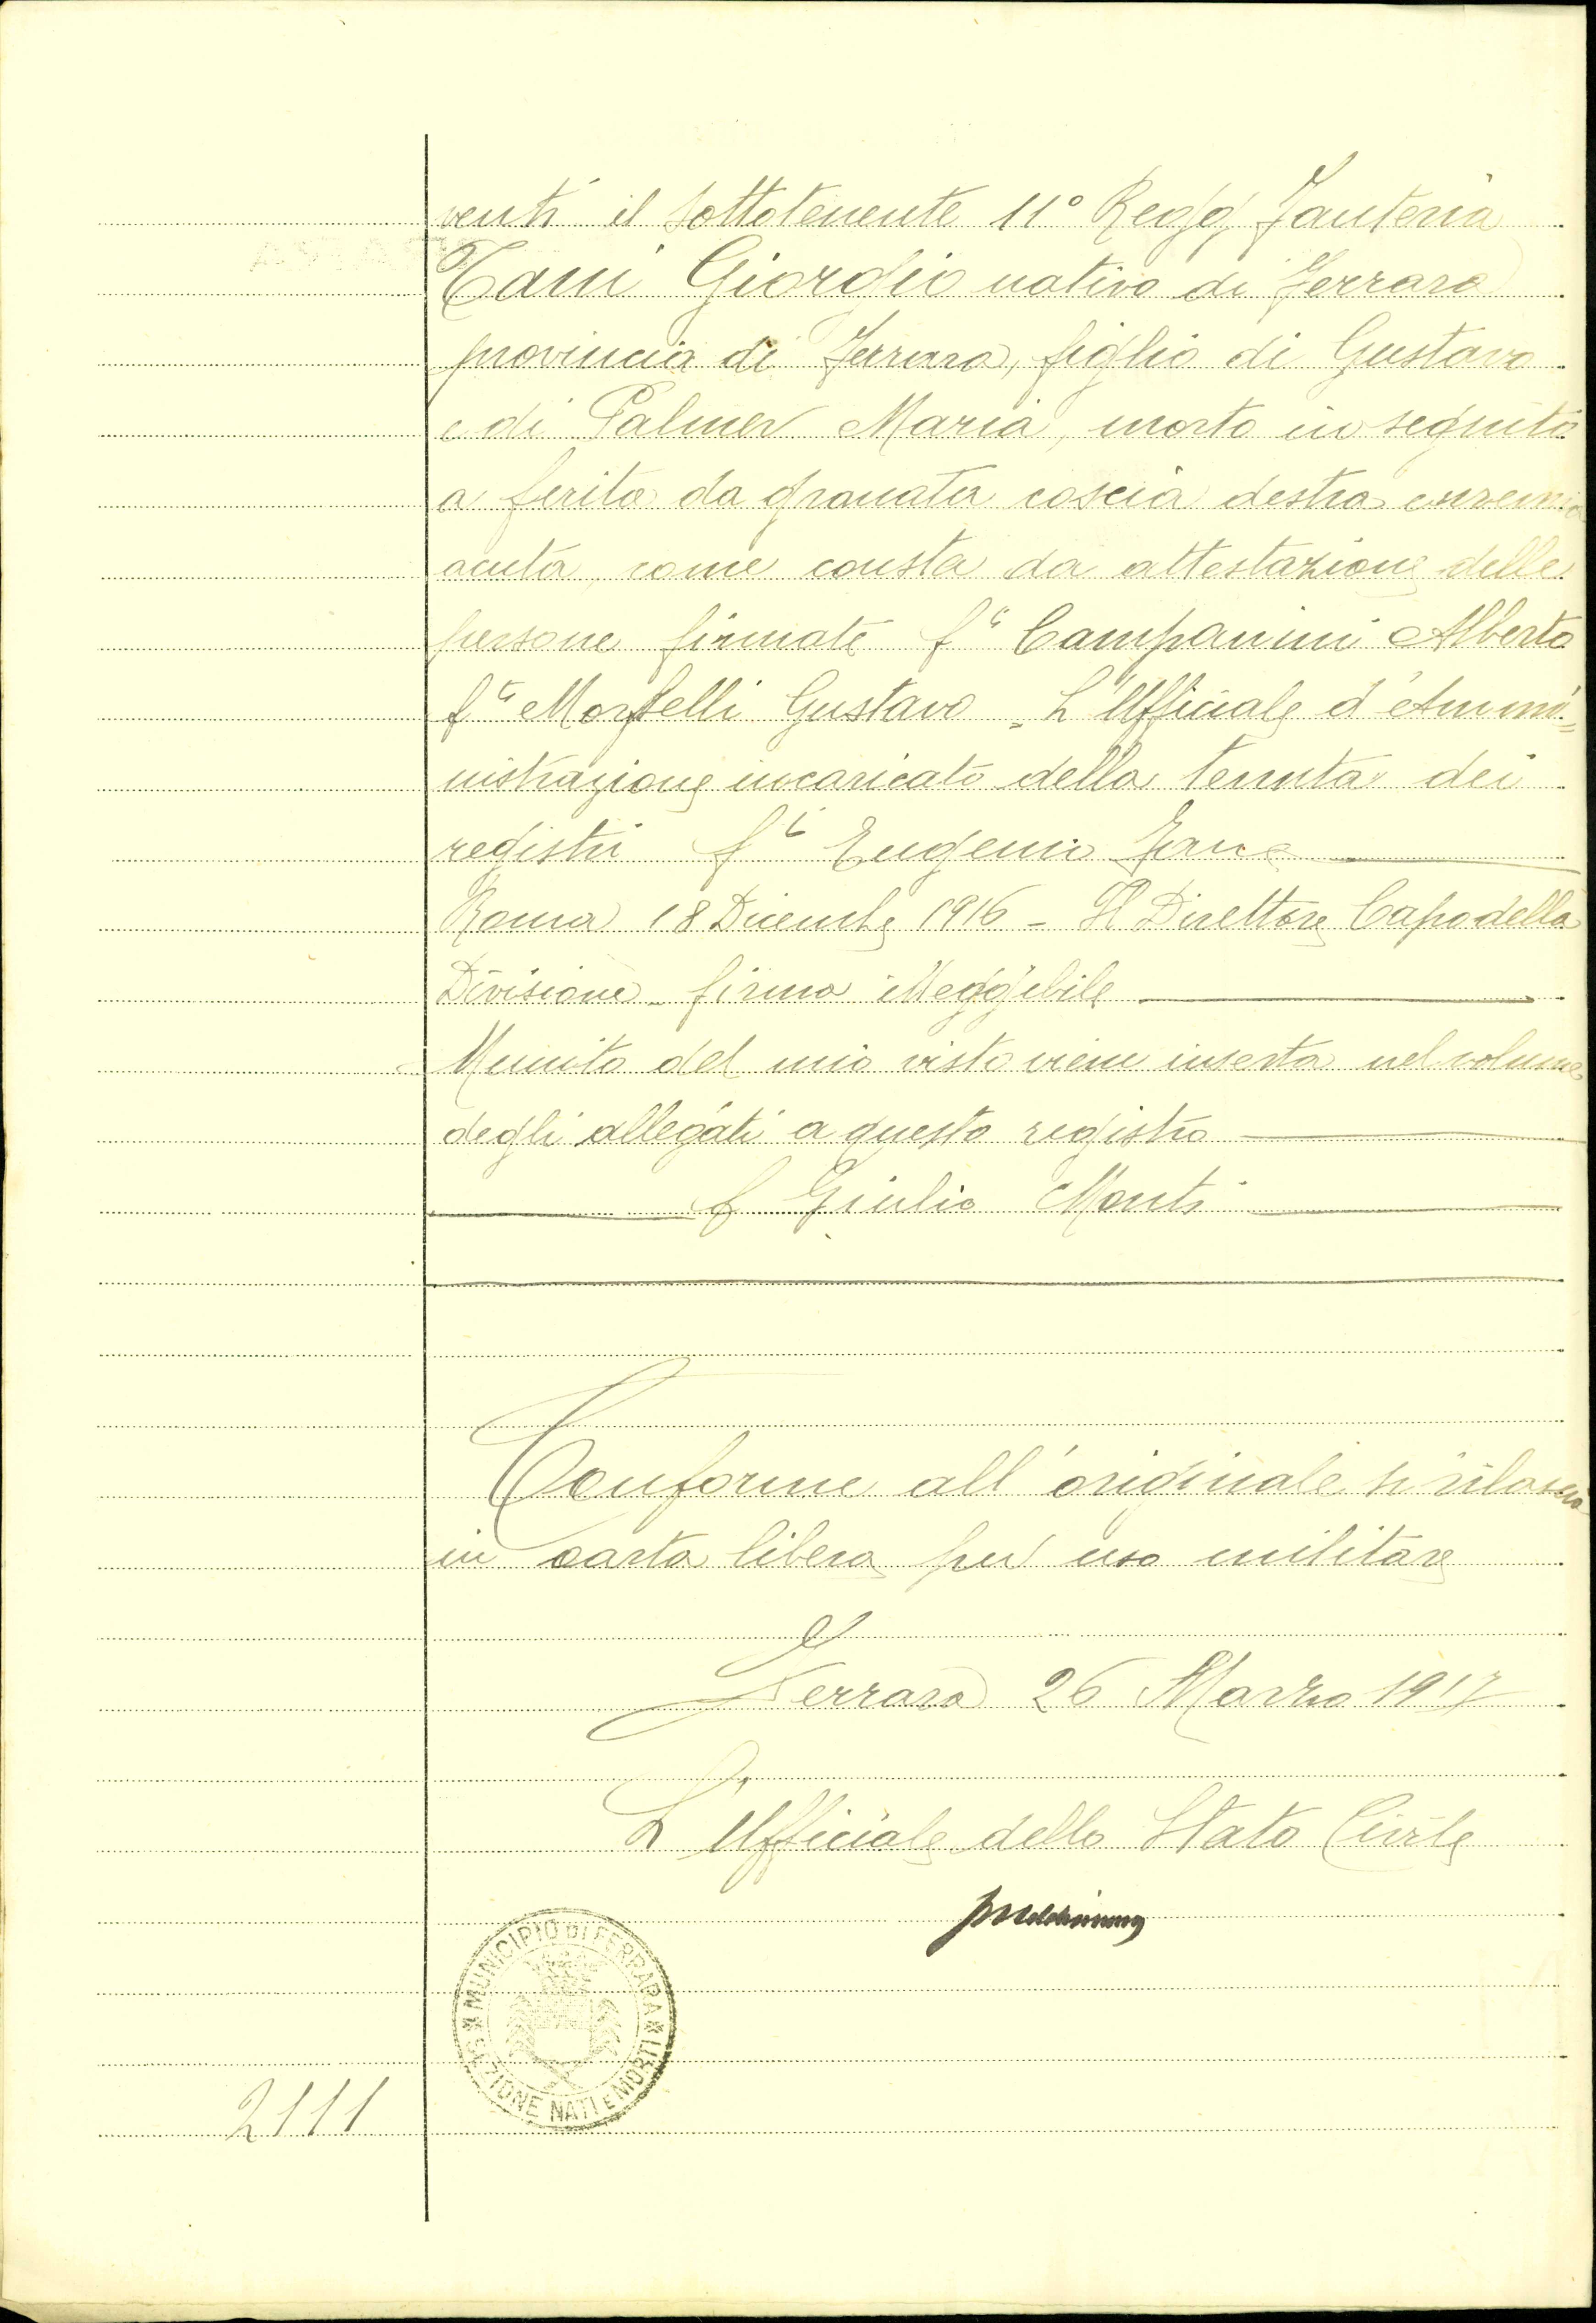 venti il Sottotenente 11° Regg Fanteria
Tani Giorgio nativo di Ferrara
provincia di Ferrara, figlio di Gustavo
e di Palmer Maria, morto in seguito
a ferita da granata coscia destra
acuta, come consta da attestazione delle
persone firmate fti Campanini Alberto
fti Morselli Gustavo = L'Ufficiale d'Ammi=
nistrazione incaricato della tenuta dei
registri fti Eugenio
Roma 18 Dicembre 1916 - Il Direttore Capo della
Divisione - firma illeggibile
Munito del mio visto viene inserta nel volume
degli allegati a questo registro
f Giulio Monti
Conforme all'originale si rilascia
in carta libera per uso militare
Ferrara 26 Marzo 1917
L'Ufficiale dello Stato Civile
MUNICIPIO DI FERRARA
SEZIONE NATI E MORTI
2111